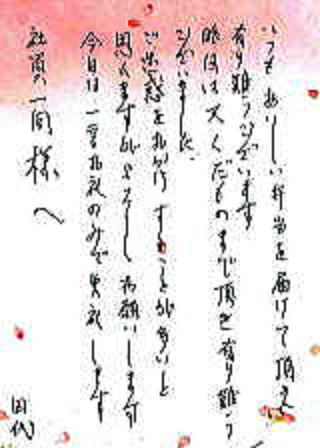 いつもおいしい弁当を届けて頂き
有り難うございます
昨日は又くだものまで頂き有り難う
ございました。
ご迷惑をおかけすることが多いと
思いますがよろしくお願いします
今日は一筆お礼のみで失礼します
社員一同様へ
田代